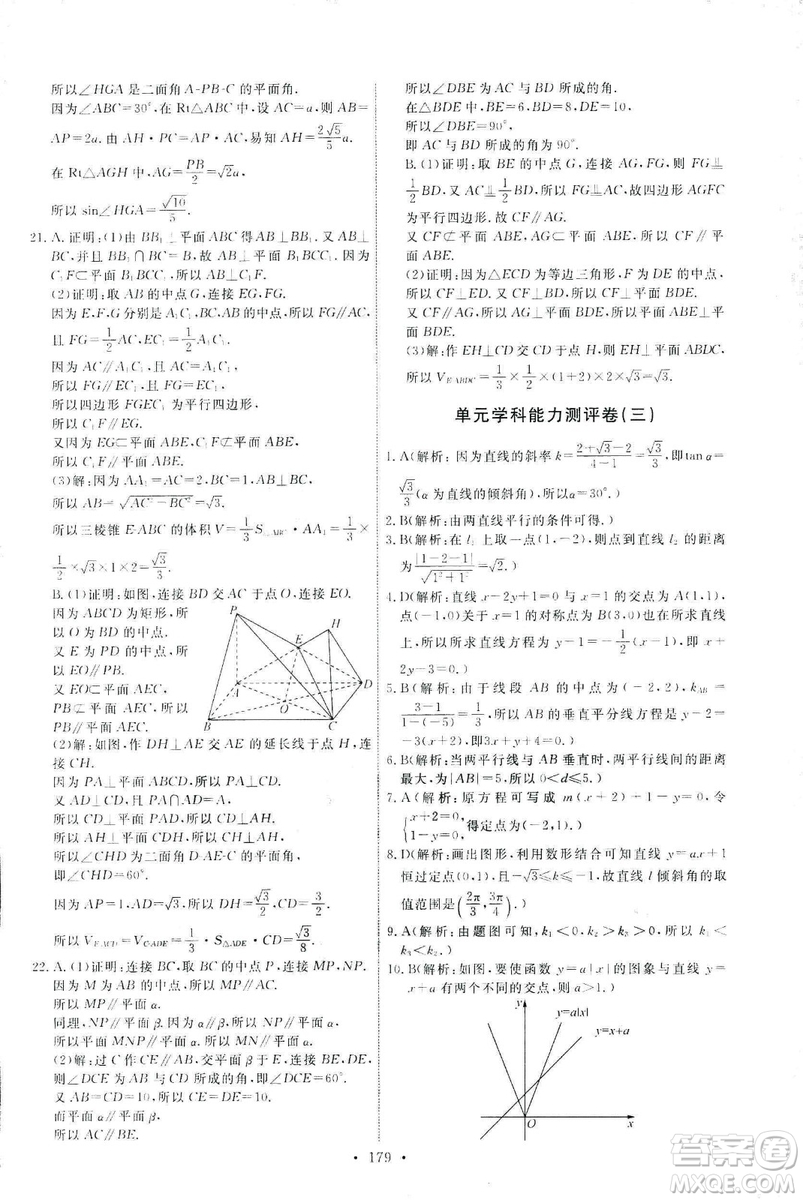 所以∠HGA 是二面角 A-PB-C 的平面角.
因为∠ABC=30°,在 Rt△ABC 中,设 AC=a,则 AB=
AP=2a. 由 AH·PC=AP·AC,易知 AH=\frac{2\sqrt{5}}{5}a.
在 Rt△AGH 中,AG=\frac{PB}{2}=\sqrt{2}a,
所以 sin∠HGA=\frac{\sqrt{10}}{5}.
21. A. 证明:(1)由 BB₁⊥平面 ABC 得 AB⊥BB₁,又 AB⊥
BC,并且 BC∩BB₁=B,故 AB⊥平面 B₁BCC₁,又
C₁F⊂平面 B₁BCC₁,所以 AB⊥C₁F.
(2)证明:取 AB 的中点 G,连接 EG,FG.
因为 E,F,G 分别是 A₁C₁,BC,AB 的中点,所以 FG∥AC,
且 FG=\frac{1}{2}AC,EC₁=\frac{1}{2}A₁C₁.
因为 AC∥A₁C₁,且 AC=A₁C₁,
所以 FG∥EC₁,且 FG=EC₁.
所以四边形 FGEC₁ 为平行四边形.
所以 C₁F∥EG.
又因为 EG⊂平面 ABE,C₁F⊄平面 ABE,
所以 C₁F∥平面 ABE.
(3)解:因为 AA₁=AC=2,BC=1,AB⊥BC,
所以 AB=\sqrt{AC²-BC²}=\sqrt{3}.
所以三棱锥 E-ABC 的体积 V=\frac{1}{3}S△ABC·AA₁=\frac{1}{3}×
\frac{1}{2}×\sqrt{3}×1×2=\frac{\sqrt{3}}{3}.
B. (1)证明:如图,连接 BD 交 AC 于点 O,连接 EO.
因为 ABCD 为矩形,所
以 O 为 BD 的中点.
又 E 为 PD 的中点,所
以 EO∥PB.
又 EO⊂平面 AEC,
PB⊄平面 AEC,所以
PB∥平面 AEC.
P E H A D O B C
(2)解:如图,作 DH⊥AE 交 AE 的延长线于点 H,连
接 CH.
因为 PA⊥平面 ABCD,所以 PA⊥CD.
又 AD⊥CD,PA∩AD=A,所以 CD⊥平面 PAD.
所以 CD⊥AH,CD⊥DH.
又 DH∩CD=D,所以 AH⊥平面 CDH.
所以 AH⊥平面 CDH,所以 CH⊥AH.
所以∠CHD 为二面角 D-AE-C 的平面角.
即∠CHD=60°.
因为 AP=1,AD=\sqrt{3},所以 DH=\frac{\sqrt{3}}{2},CD=\frac{3}{2}.
所以 V_{E-ACD}=V_{C-ADE}=\frac{1}{3}·S△ADE·CD=\frac{\sqrt{3}}{8}.
22. A. (1)证明:连接 BC,取 BC 的中点 P,连接 MP,NP.
因为 M 为 AB 的中点,所以 MP∥AC.
所以 MP∥平面 α.
同理,NP∥平面 β. 因为 α∥β,所以 NP∥平面 α.
所以平面 MNP∥平面 α,所以 MN∥平面 α.
(2)解:过 C 作 CE∥AB,交平面 β 于 E,连接 BE,DE,
则∠DCE 为 AB 与 CD 所成的角,即∠DCE=60°.
因为 AB=CD=10,所以△CDE 为等边三角形,DE=10.
而平面 α∥平面 β,
所以 AC∥BE.
所以∠DBE 为 AC 与 BD 所成的角.
在△DBE 中,BE=6,BD=8,DE=10,
所以∠DBE=90°,
即 AC 与 BD 所成的角为 90°.
B. (1)证明:取 BE 的中点 G,连接 AG,FG,则 FG⫫
\frac{1}{2}BD,又 AC⫫\frac{1}{2}BD,所以 FG⫫AC,故四边形 AGFC
为平行四边形. 故 CF∥AG.
又 CF⊄平面 ABE,AG⊂平面 ABE,所以 CF∥平面
ABE.
(2)证明:因为△ECD 为等边三角形,F 为 DE 的中点,
所以 CF⊥DE,又 CF⊥BD,且 BD∩DE=D,
所以 CF⊥平面 BDE,又 CF∥AG,故 AG⊥平面
BDE.
(3)解:作 EH⊥CD 交 CD 于点 H,所以 EH⊥平面 ABDC,
所以 V_{E-ABDC}=\frac{1}{3}×\frac{1}{2}×(1+2)×2×\sqrt{3}=\sqrt{3}.
单元学科能力测评卷(三)
1. A(解析:因为直线的斜率 k=\frac{2+\sqrt{3}-2}{4-1}=\frac{\sqrt{3}}{3},即tan α=
\frac{\sqrt{3}}{3}(α 为直线的倾斜角),所以α=30°.)
2. B(解析:由两直线平行的条件可得.)
3. B(解析:在 l₁ 上取一点(1,-2),则点到直线 l₂ 的距离
为\frac{|1-2-1|}{\sqrt{1²+1²}}=\sqrt{2}.)
4. D(解析:直线 x-2y+1=0 与 x=1 的交点为 A(1,1),
点(-1,0)关于 x=1 的对称点为 B(3,0)也在所求直线
上,所以所求直线方程为 y-1=-\frac{1}{2}(x-1),即 x+
2y-3=0.)
5. B(解析:由于线段 AB 的中点为(-2,2),k_{AB}=
\frac{3-1}{1-(-5)}=\frac{1}{3},所以 AB 的垂直平分线方程为 y-2=
-3(x+2),即3x+y+4=0.)
6. B(解析:当两平行线与 AB 垂直时,两平行线间的距离
最大,为|AB|=5,所以 0<d≤5.)
7. A(解析:原方程可写成 m(x+2)+1-y=0,令
{x+2=0, 1-y=0, 得定点为(-2,1).)
8. D(解析:画出图形,利用数形结合可知直线 y=kx+1
恒过定点(0,1),且-\sqrt{3}≤k≤-1,故直线 l 倾斜角的取
值范围是[\frac{2π}{3},\frac{3π}{4}].)
9. A(解析:由题图可知,k₁<0,k₂>k₃>0,所以 k₁<
k₃<k₂.)
10. B(解析:如图,要使函数 y=a|x|的图象与直线 y=
x+a 有两个不同的交点,则 a>1.)
y y=a|x|
y=x+a
O x
179
答案圈
MXQE.COM